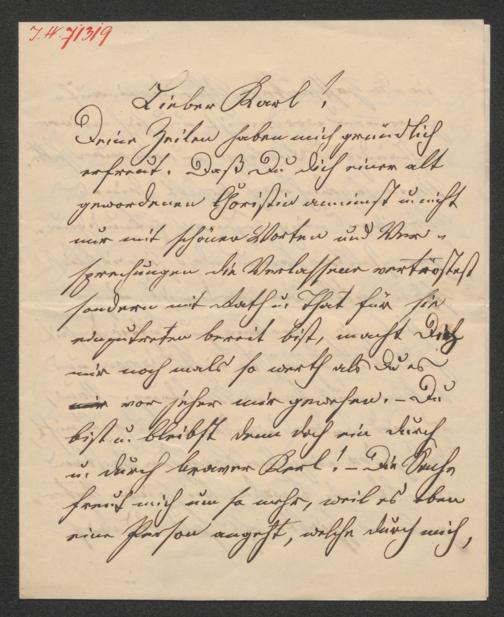 J.N. 7/3/9
Lieber Karl!
Deine Zeilen haben mich gründlich
erfreut. Daß Du dich einer alt
gewordenen Choristin annimst u. nicht
nur mit schönen Worten und Ver-
sprechungen die Verlassene vertröstest
sondern mit Rath u. That für sie
einzutreten bereit bist, macht Dich
mir noch mals so werth als Du es
mir vor jeher mir gewesen. – Du
bist u. bleibst denn doch ein durch
u. durch braver Kerl! – Die Sache
freut mich um so mehr, weil es eben
eine Person angeht, welche durch mich,